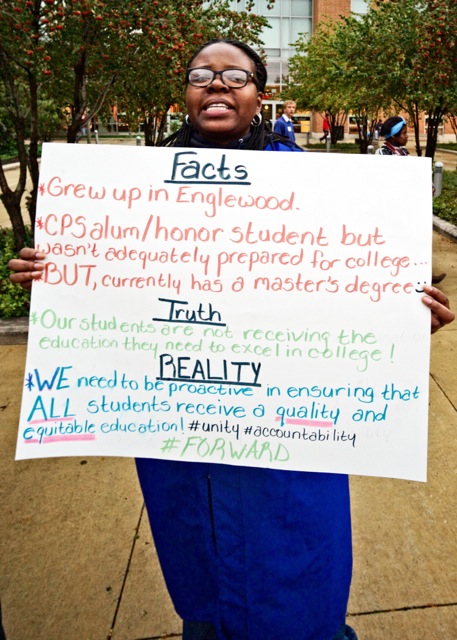 Facts
*Grew up in Englewood.
*CPS alum/honor student but
wasn't adequately prepared for college...
*BUT, currently has a master's degree :)
Truth
*Our students are not receiving the
education they need to excel in college!
REALITY
*WE need to be proactive in ensuring that
ALL students receive a quality and
equitable education! #unity #accountability
#FORWARD